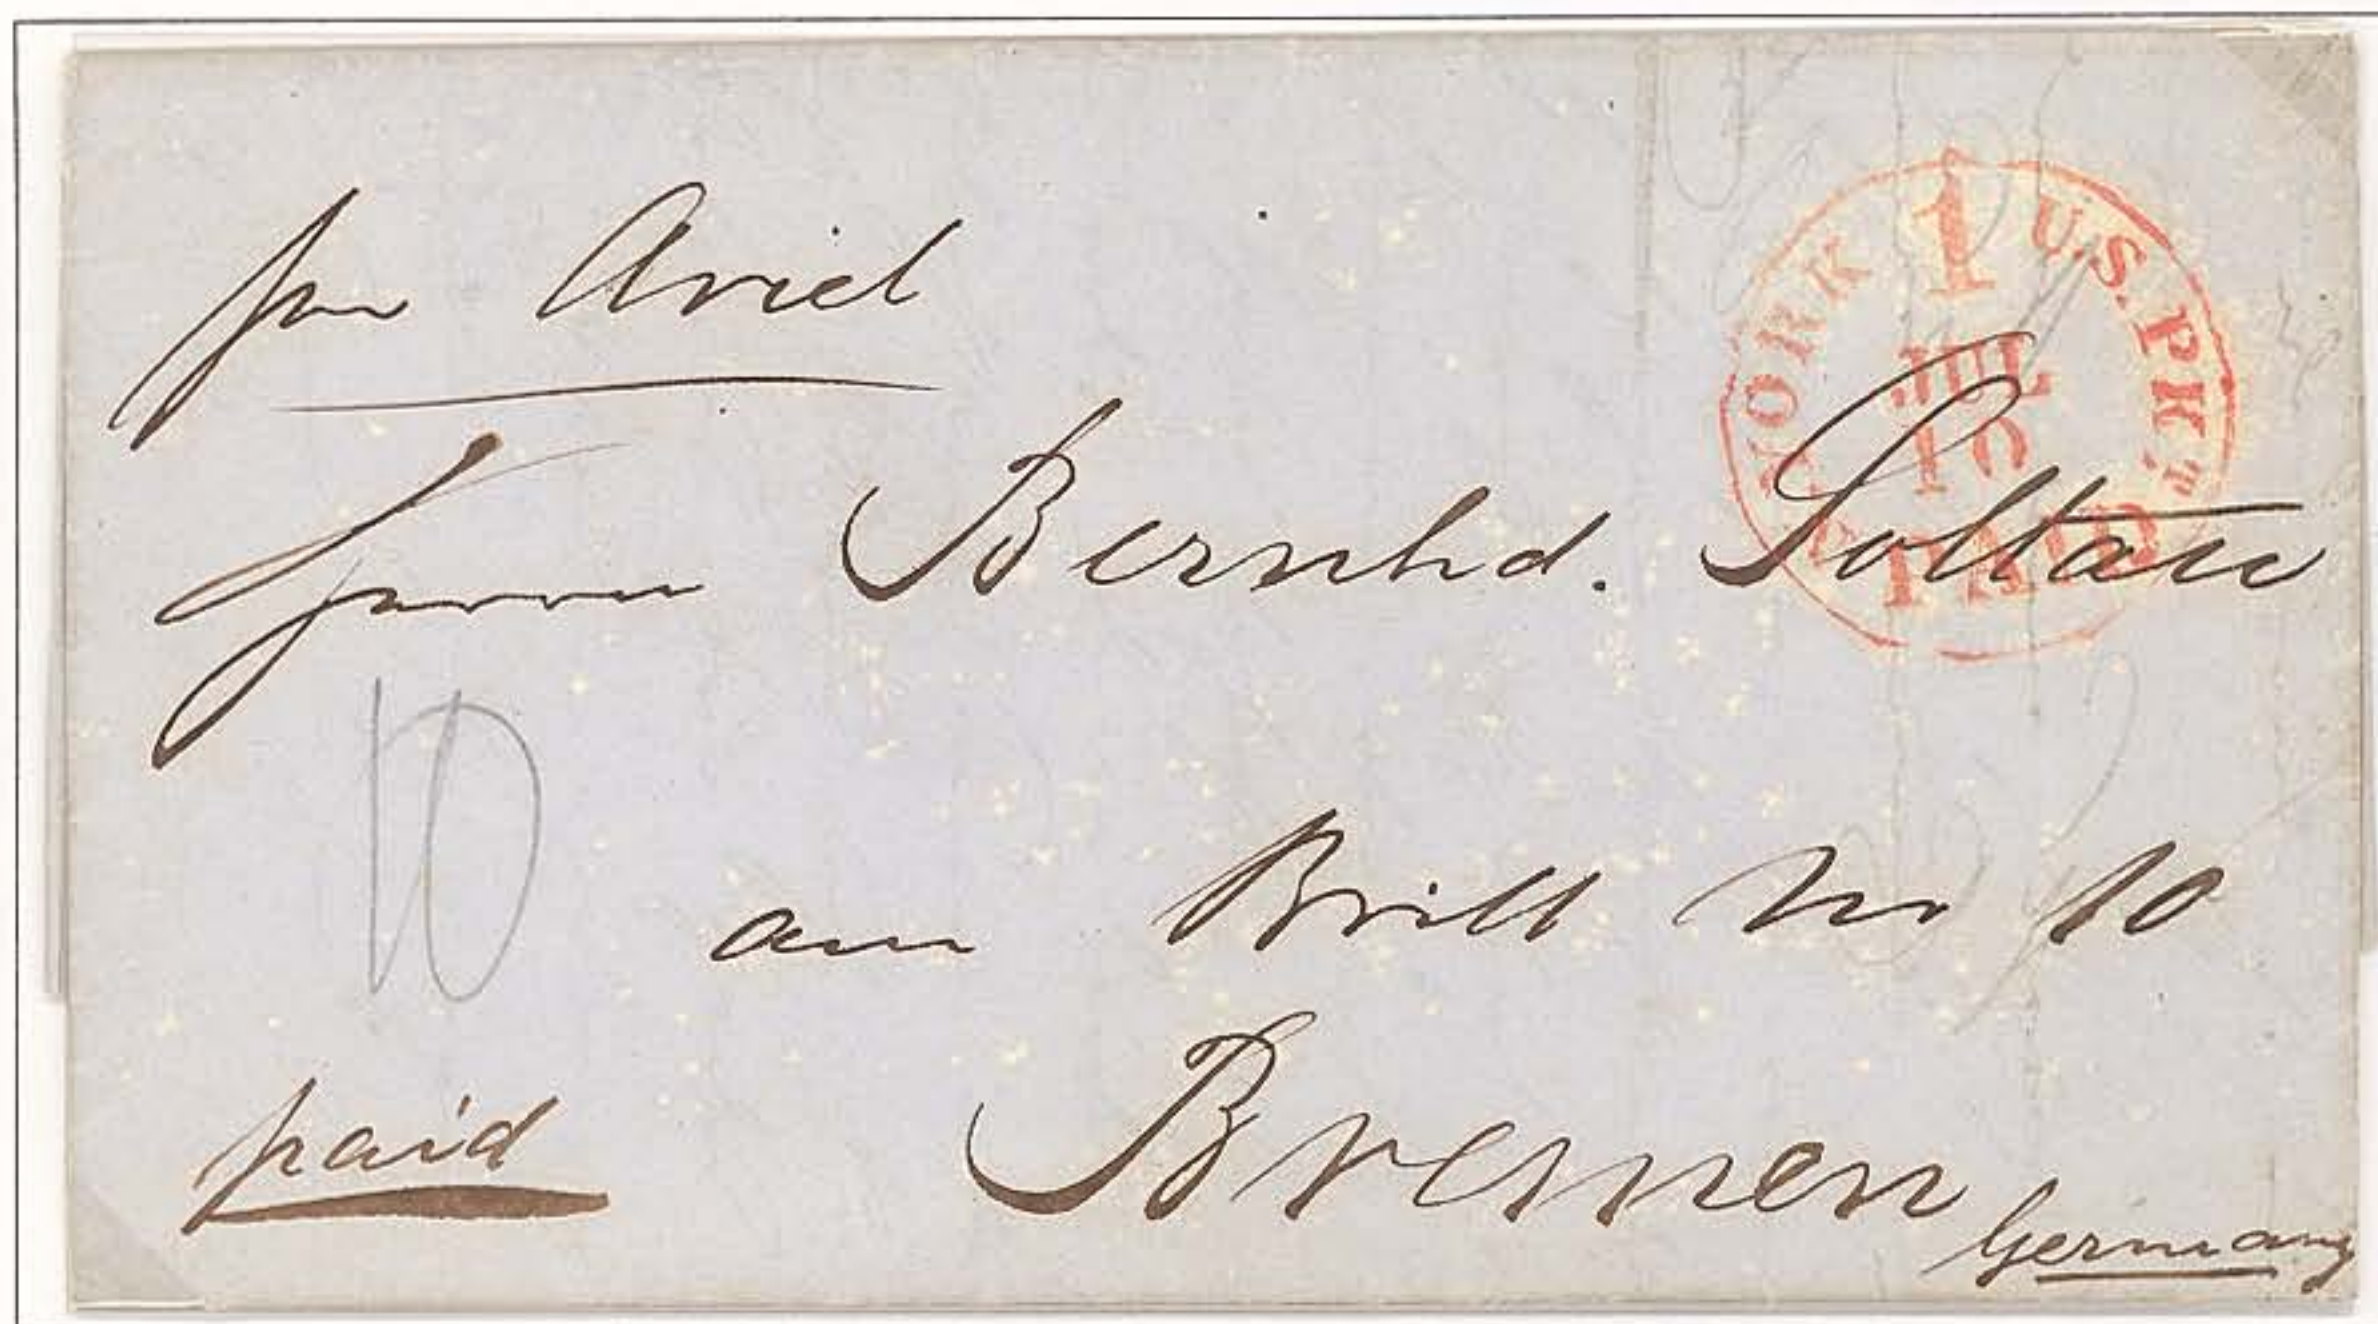 per Ariel
Herrn Bernhd. Soltau
10
am Brill No 10
paid
Bremen
Germany
YORK 1 U.S. PKT
JUL
10
PAID